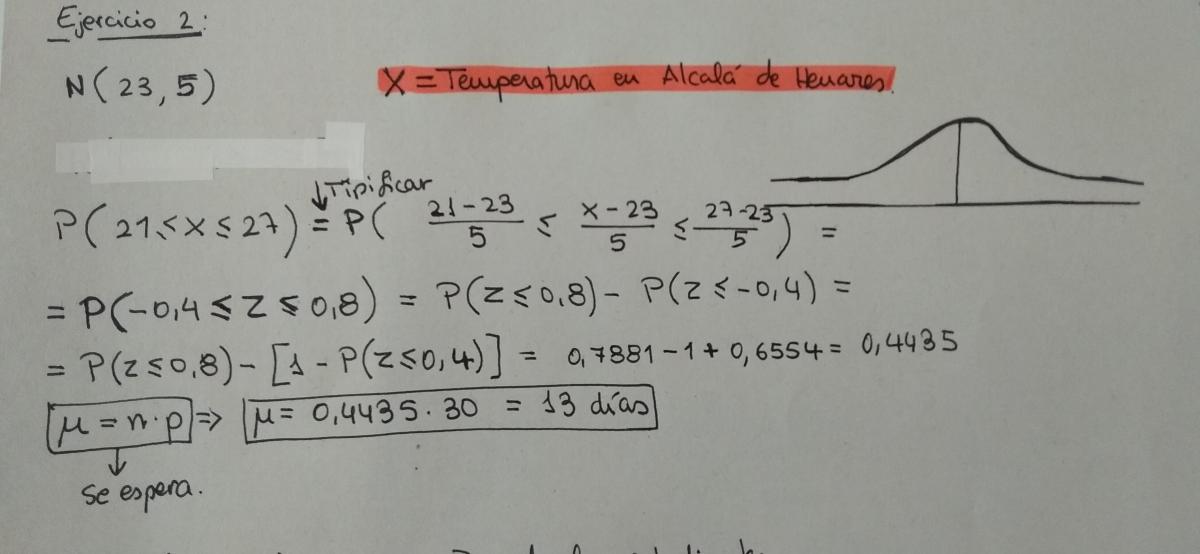 Ejercicio 2:
N(23,5)
X = Temperatura en Alcalá de Henares.
↓ Tipificar
P(21 ≤ x ≤ 27) = P( 21-23/5 ≤ x-23/5 ≤ 27-23/5 ) =
= P(-0,4 ≤ Z ≤ 0,8) = P(Z ≤ 0,8) - P(Z ≤ -0,4) =
= P(Z ≤ 0,8) - [1 - P(Z ≤ 0,4)] = 0,7881 - 1 + 0,6554 = 0,4435
μ = n·p ⇒ μ = 0,4435 · 30 = 13 días
↓
Se espera.